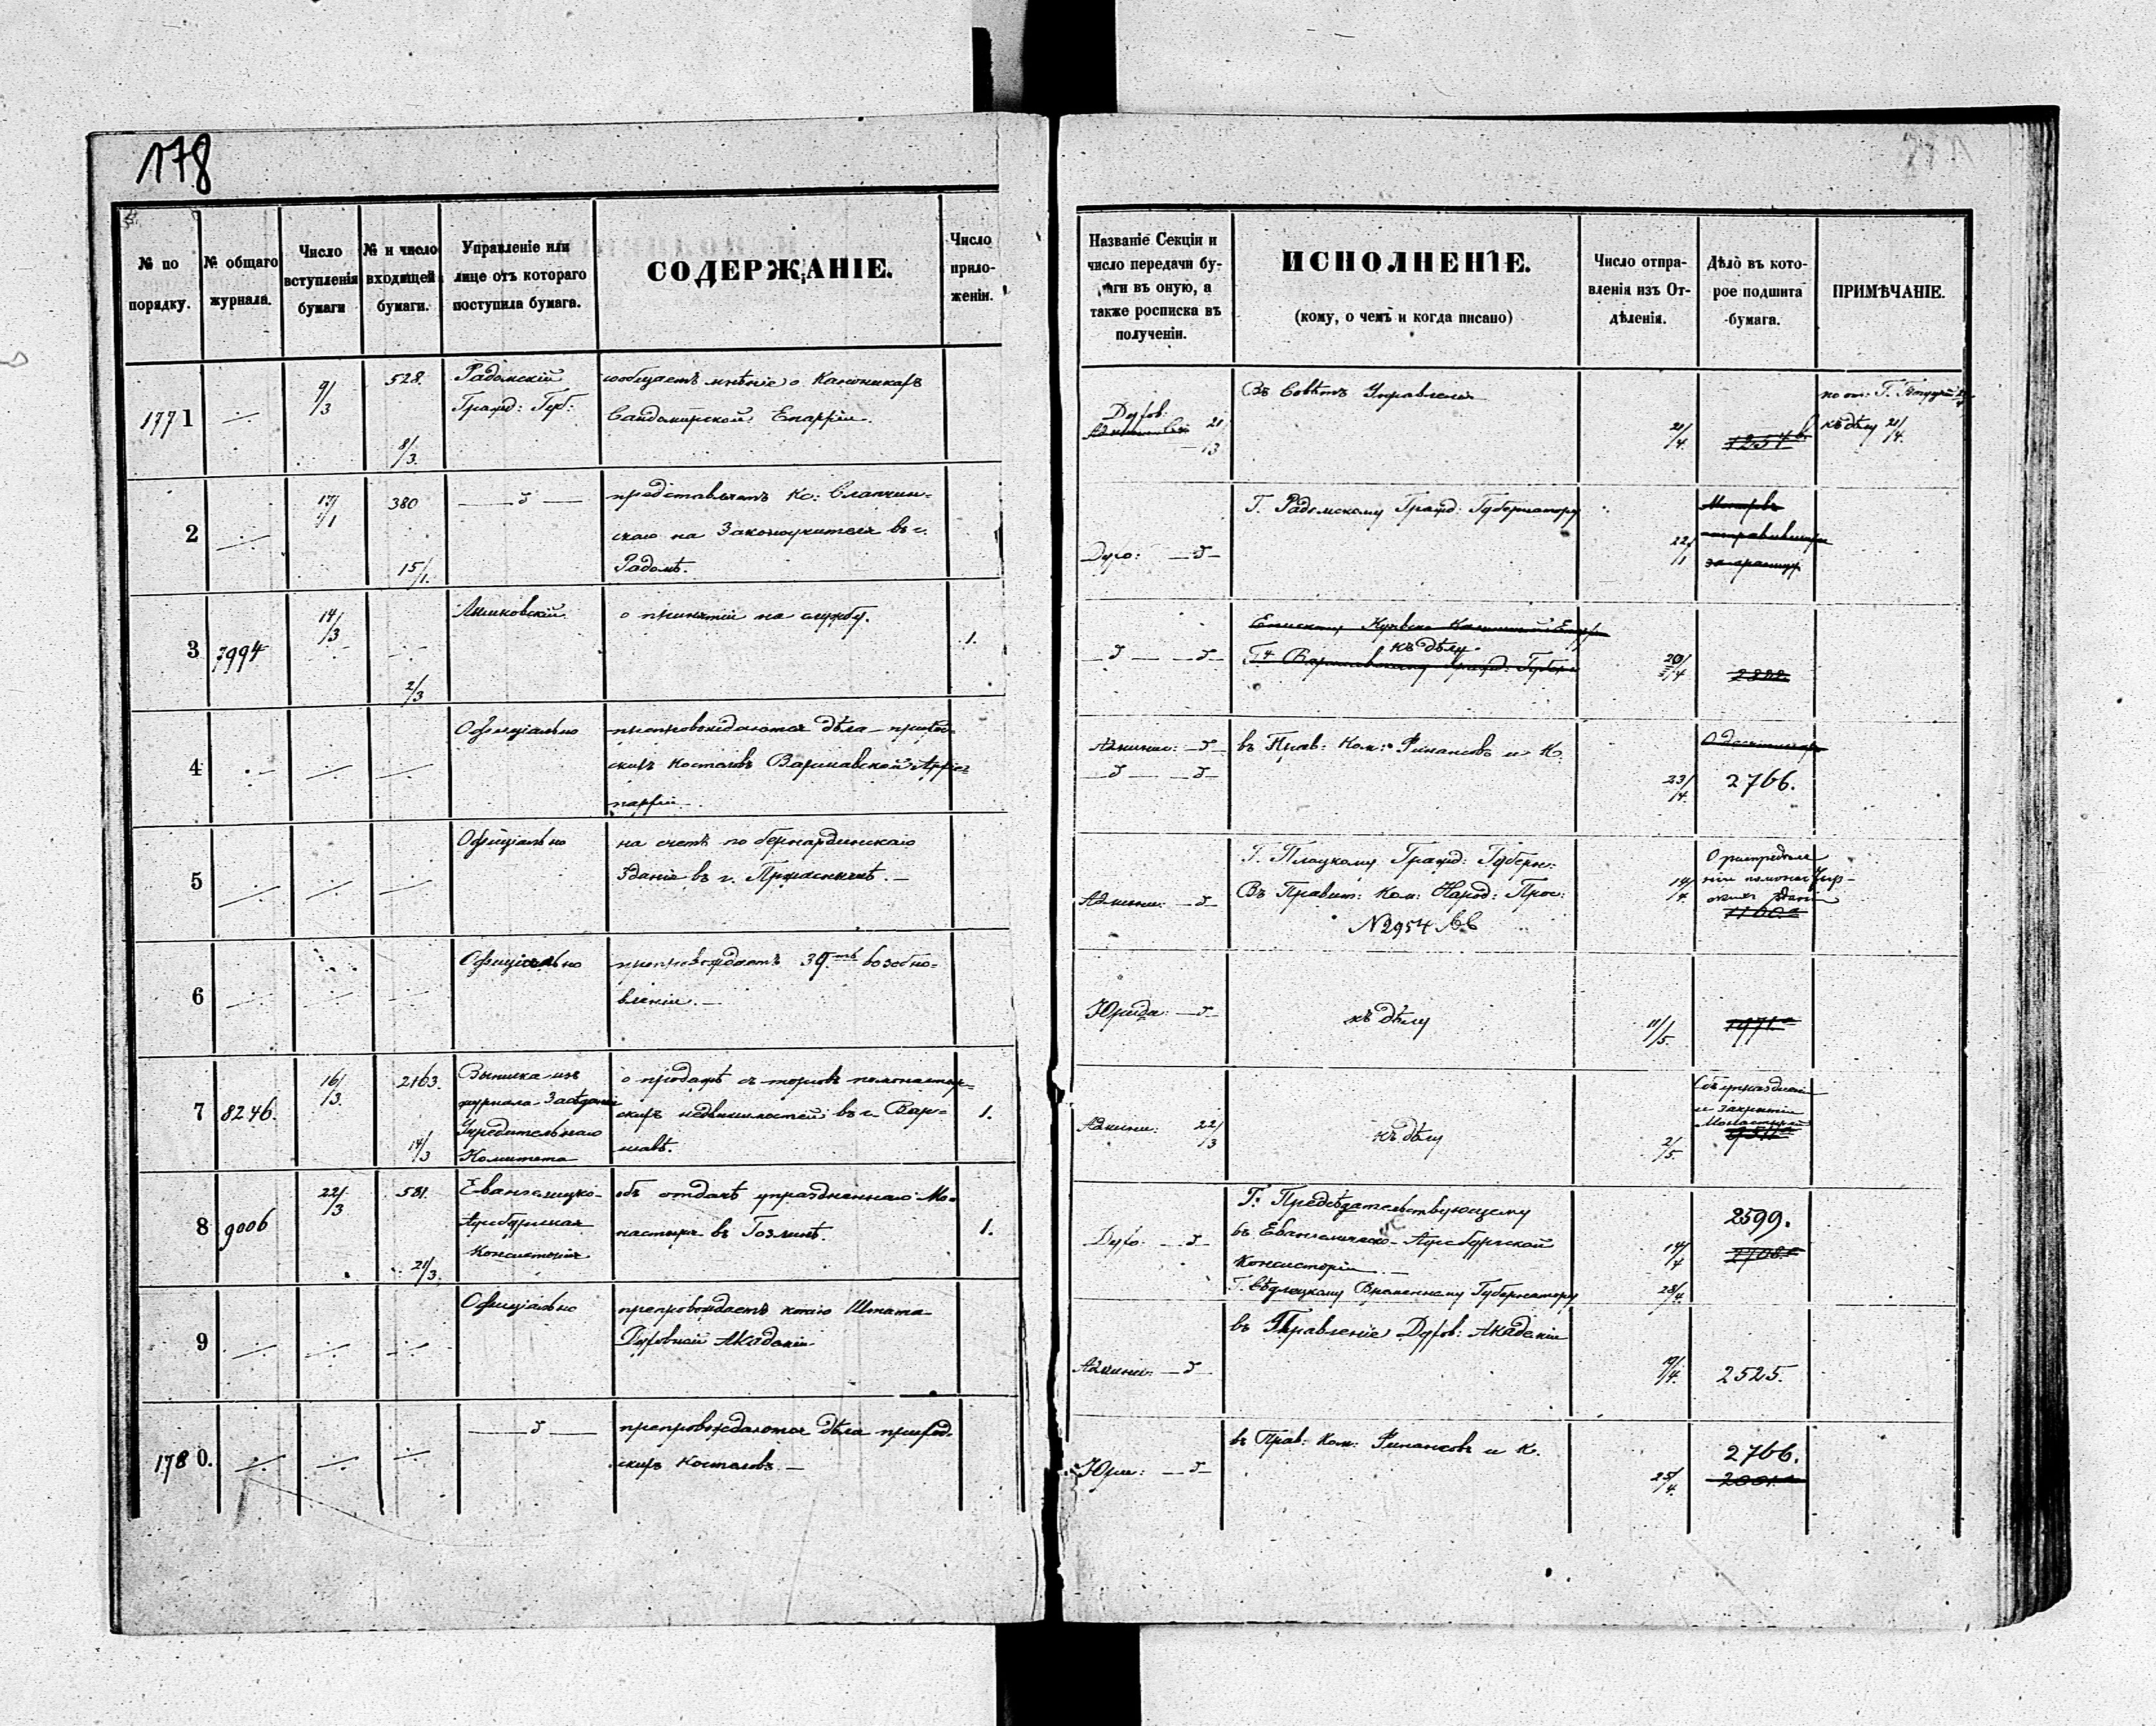 178
№ по порядку.
№ общаго журнала.
Число вступленія бумаги
№ и число входящей бумаги.
Управленіе или лице отъ котораго поступила бумага.
СОДЕРЖАНІЕ.
Число приложеніи.
Названіе Секціи и число передачи бумаги въ оную, а также росписка въ полученіи.
ИСПОЛНЕНІЕ.
(кому, о чемъ и когда писано)
Число отправленія изъ Отдѣленія.
Дѣло въ которое подшита бумага.
ПРИМѢЧАНІЕ.
1771
9/3
528.
8/3.
Радомскій
Гражд: Губ:
сообщаетъ мнѣніе о Каноникахъ
Сандомирской Епархіи.
Духов:
21/3
Въ Совѣтъ Управленія
21/4.
1254
къ дѣлу 21/4.
2
17/1
380
15/1.
представляетъ Кс:
скаго на Законоучителя въ г.
Радомѣ.
Духо:
Г. Радомскому Гражд: Губернатору
22/1
3
7994
14/3
2/3
о принятіи на службу.
1.
къ дѣлу
20/4
4
Офиціально
препровождаются дѣла приход-
скихъ костеловъ Варшавской Архіе-
пархіи.
Админис:
въ Прав: Ком: Финансовъ и К.
23/4.
2766.
5
Офиціально
на счетъ по бернардинскаго
зданія въ г. Праснышѣ.
Админи:
Г. Плоцкому Гражд: Губерн:
Въ Правит: Ком: Народ: Прос:
№ 2954
14/4
6
Офиціально
препровождаетъ 39.
вленіи.
Юрид:
къ дѣлу
11/5.
1971
7
8246.
16/3.
2163.
14/3
Выписка изъ
журнала Засѣданія
Учредительнаго
Комитета
о продажѣ съ торговъ помонастыр-
скихъ недвижимостей въ г. Вар-
шавѣ.
1.
Админи:
22/3
къ дѣлу
2/5.
Объ упраздненіи
и закрытіи
Монастырей
8
9006
22/3
581.
21/3.
Евангелицко-
Аугсбургская
Консисторія
объ отдачѣ упраздненнаго Мо-
настыря въ Гозлинѣ.
1.
Духо.
Г. Предсѣдательствующему
въ Евангелическо-Аугсбургской
Консисторіи
Г. Сѣдлецкому Временному Губернатору
14/4
28/4
2599.
9
Офиціально
препровождаетъ копію Штата
Духовной Академіи
Админи:
въ Правленіе Духов: Академіи
19/4.
2525.
1780.
препровождаются дѣла приход-
скихъ костеловъ.
Юри:
въ Прав: Ком: Финансовъ и К.
25/4.
2766.